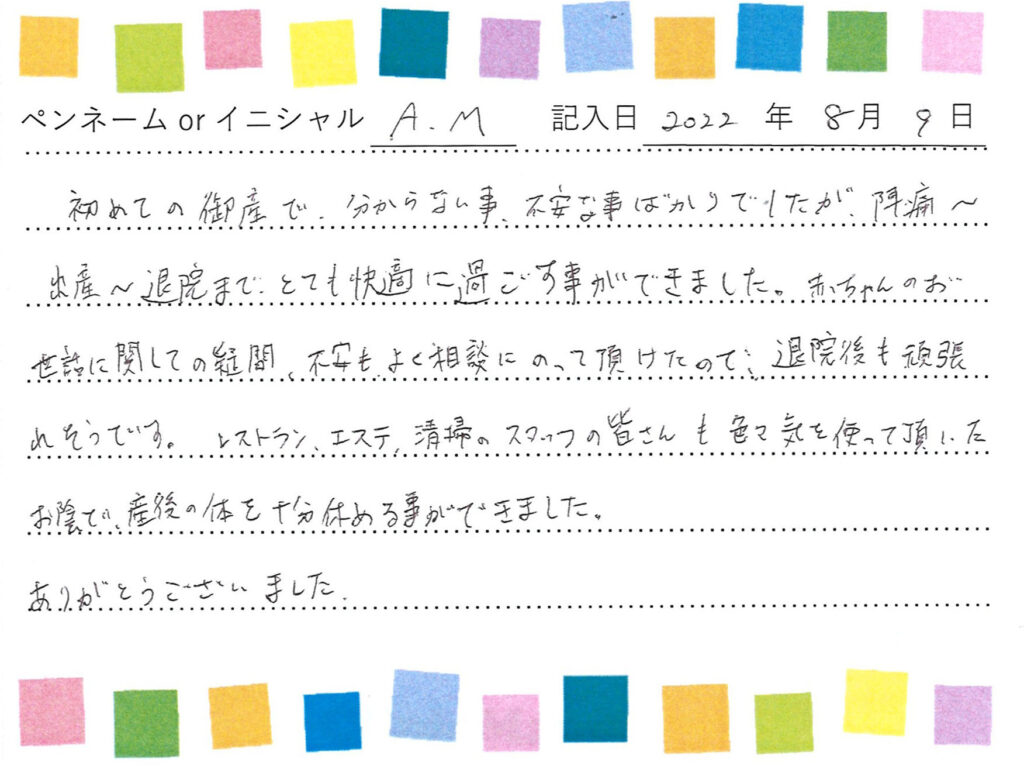 ペンネーム or イニシャル A.M 記入日 2022 年 8月 9日
初めての御産で、分からない事、不安な事ばかりでしたが、陣痛〜
出産〜退院まで、とても快適に過ごす事ができました。赤ちゃんのお
世話に関しての疑問、不安も、よく相談にのって頂けたので、退院後も頑張
れそうです。レストラン、エステ、清掃のスタッフの皆さんも色々気を使って頂いた
お陰で、産後の体を十分休める事ができました。
ありがとうございました。